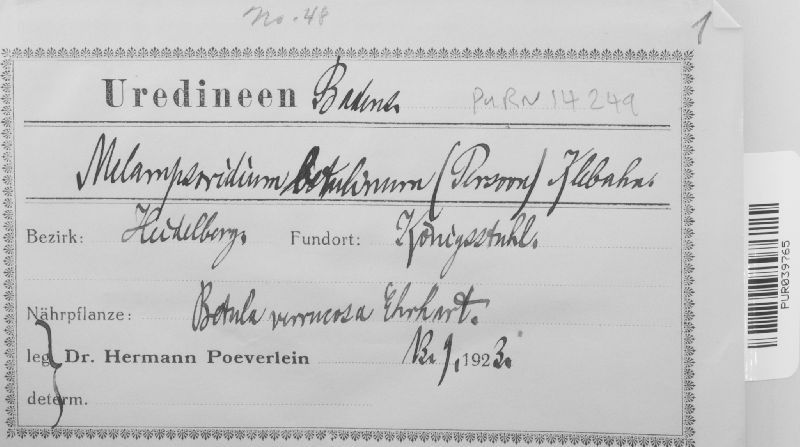 No. 48
1
Uredineen Badens.
PURN 14249
Melampsoridium betulinum (Persoon) Klebahn.
Bezirk: Heidelberg. Fundort: Königsstuhl.
Nährpflanze: Betula verrucosa Ehrhart.
leg. Dr. Hermann Poeverlein 13. 9. 1923.
determ.
PUR039765